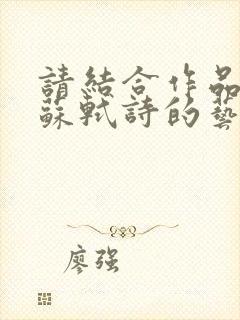 請結合作品
蘇軾詩的藝
廖强